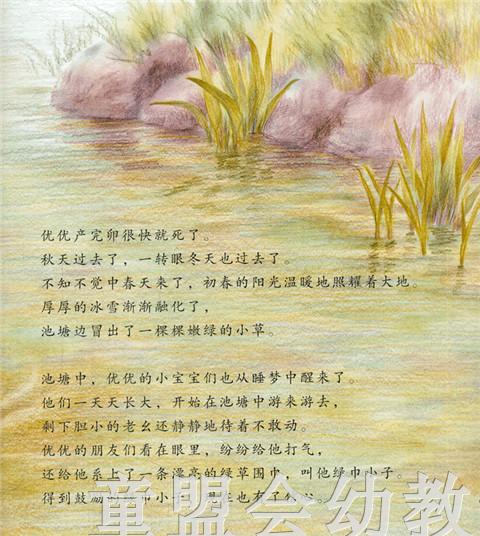 优优产完卵很快就死了。
秋天过去了，一转眼冬天也过去了。
不知不觉中春天来了，初春的阳光温暖地照耀着大地。
厚厚的冰雪渐渐融化了，
池塘边冒出了一棵棵嫩绿的小草。
池塘中，优优的小宝宝们也从睡梦中醒来了。
他们一天天长大，开始在池塘中游来游去，
剩下胆小的老幺还静静地待着不敢动。
优优的朋友们看在眼里，纷纷给他打气，
还给他系上了一条漂亮的绿草围巾，叫他绿巾小子。
得到鼓励的绿巾小子，现在也有了信心。
童盟会幼教